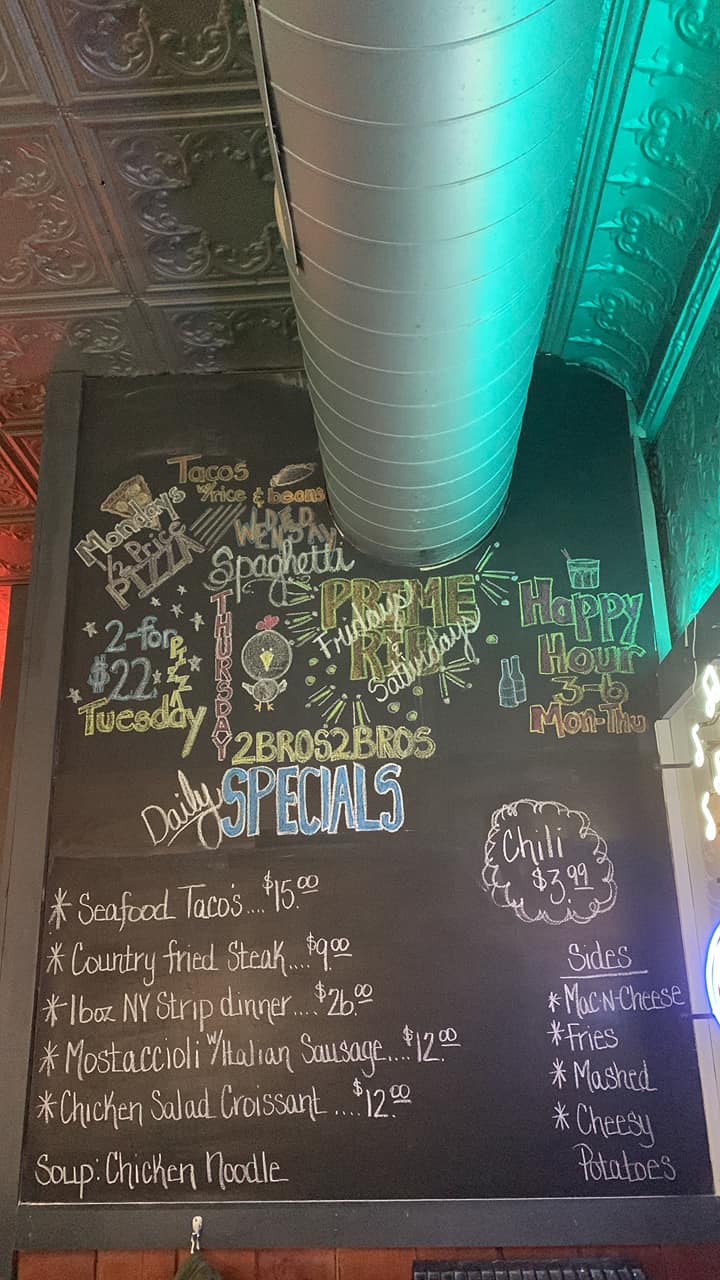 Tacos
w/rice & beans
Mondays
1/2 Price
PIZZA
WEDNESDAY
Spaghetti
2-for
$22
PIZZA
Tuesday
THURSDAY
PRIME
RIB
Fridays
&
Saturdays
2BROS2BROS
Happy
Hour
3-6
Mon-Thu
Daily SPECIALS
Chili
$3.99
* Seafood Taco's....$15.00
* Country fried Steak....$9.00
* 16oz NY Strip dinner....$26.00
* Mostaccioli w/Italian Sausage....$12.00
* Chicken Salad Croissant ....$12.00
Soup: Chicken Noodle
Sides
* Mac-N-Cheese
* Fries
* Mashed
* Cheesy
Potatoes